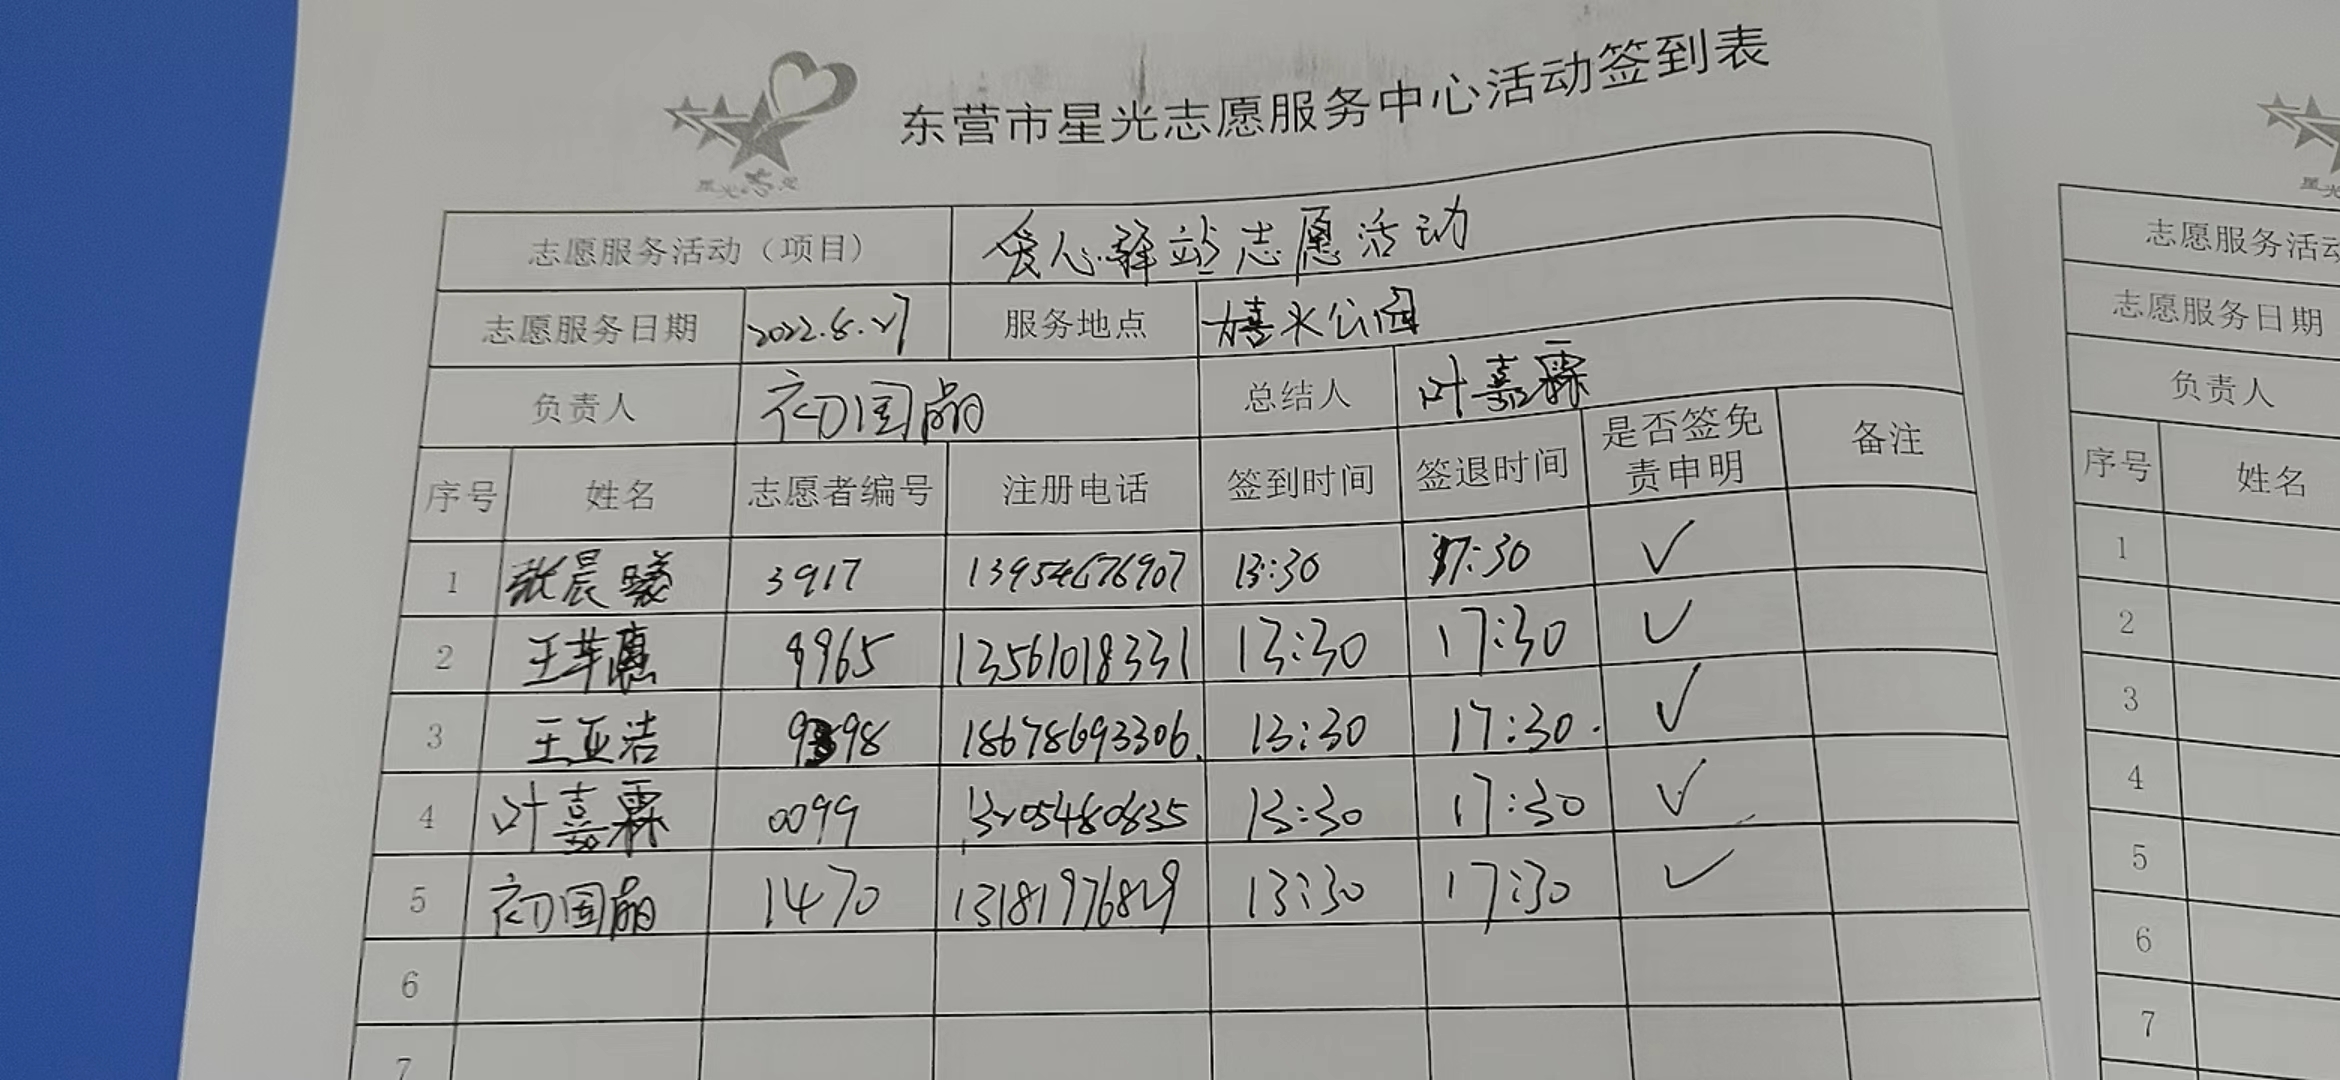 东营市星光志愿服务中心活动签到表
志愿服务活动（项目） 爱心驿站志愿活动
志愿服务日期 2022.8.27 服务地点 嬉水公园
负责人 初国萌 总结人 叶嘉霖
序号 姓名 志愿者编号 注册电话 签到时间 签退时间 是否签免责申明 备注
1 张晨曦 3917 13954676907 13:30 17:30 ✓
2 王苹惠 9965 13561018331 13:30 17:30 ✓
3 王亚洁 18678693306. 13:30 17:30. ✓
4 叶嘉霖 0099 13205480835 13:30 17:30 ✓
5 初国萌 1470 13181976829 13:30 17:30 ✓
6
7
志愿服务活动
志愿服务日期
负责人
序号 姓名
1
2
3
4
5
6
7